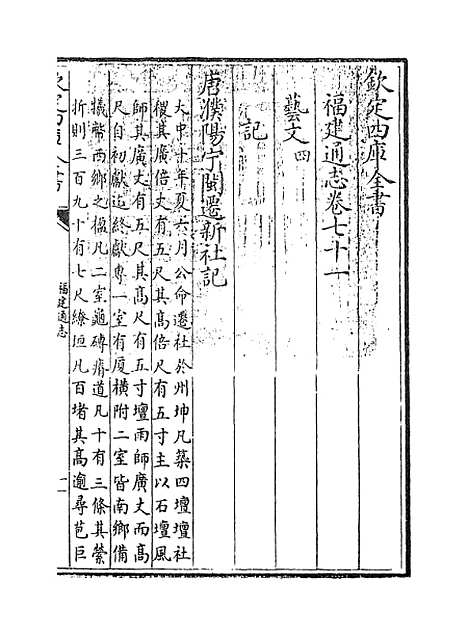 欽定四庫全書
福建通志卷七十一
藝文四
記
唐濮陽寧閩遷新社記
大中十年夏六月公命遷社於州坤凡築四壇壇社
稷其廣倍丈有五尺其高倍尺有五寸主以石壇風
師其廣丈有五尺其高尺有五寸壇雨師廣丈而高
尺自初獻迄終獻專一室有廈橫附二室皆南鄉備
犧幣西鄉之楹凡二室龜磚痟道凡十有三條其縈
折則三百九十有七尺繚垣凡百堵其高逾尋芭巨
欽定四庫全書
福建通志
一